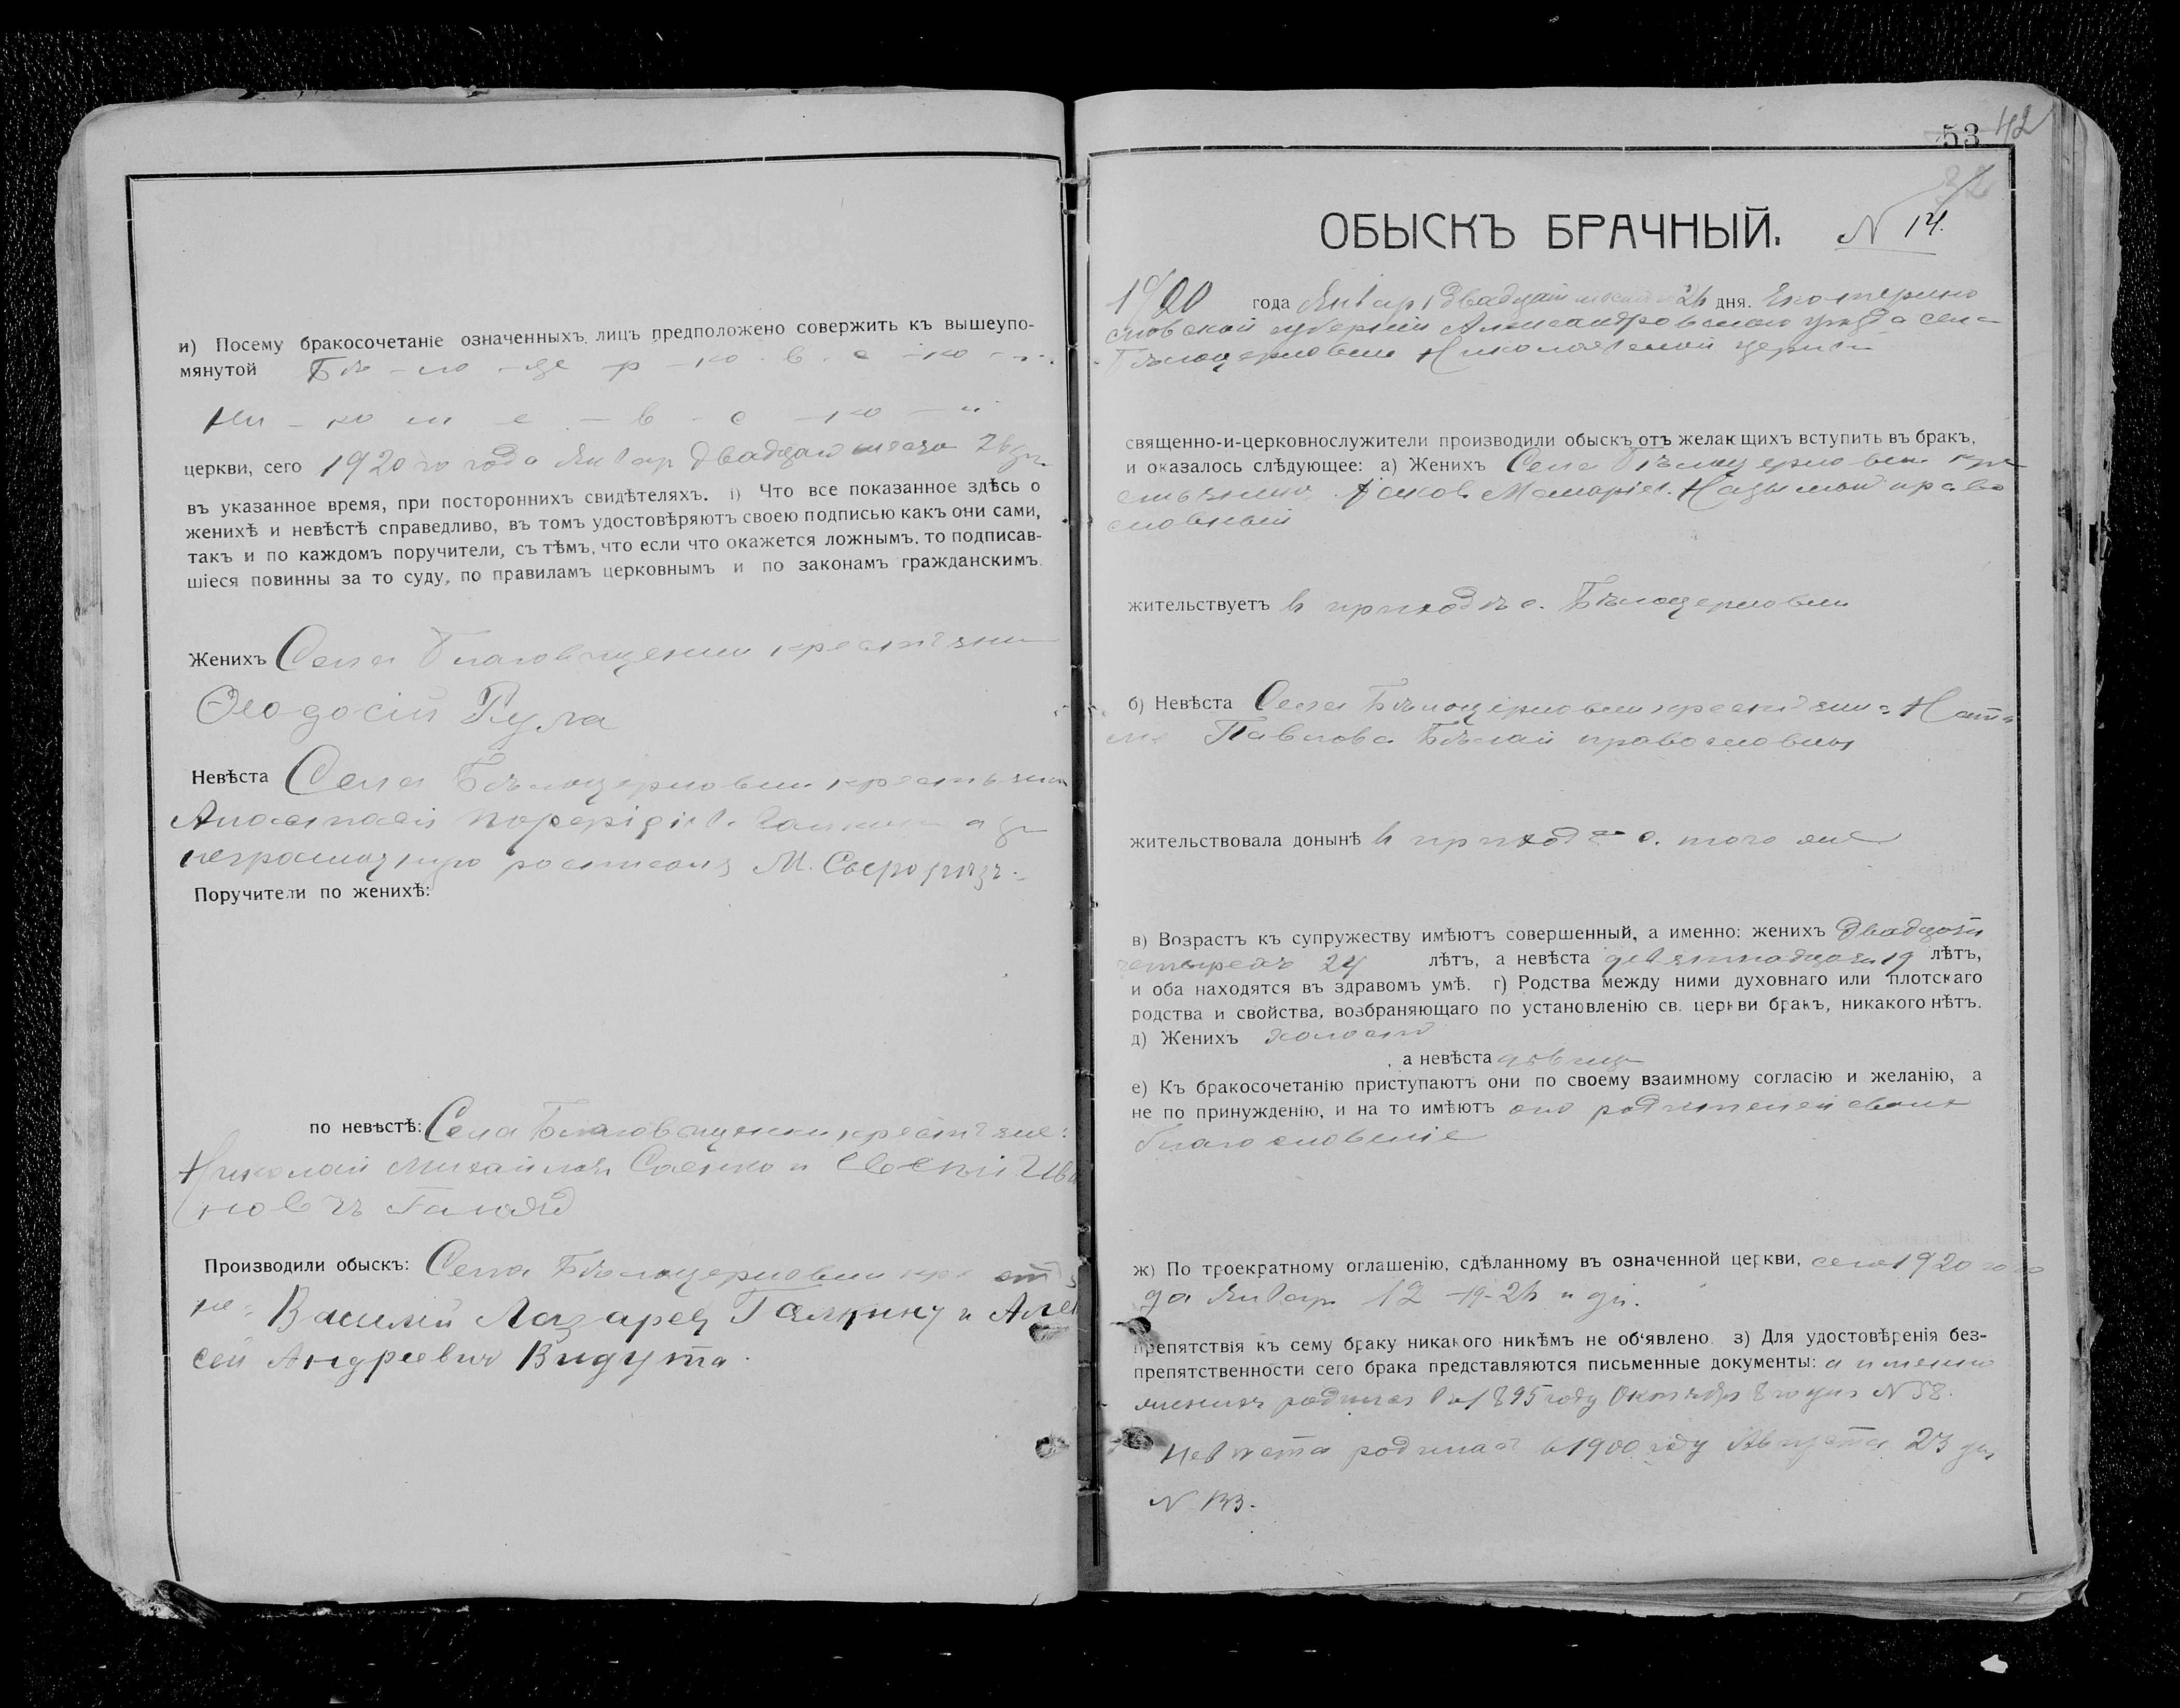 и) Посему бракосочетаніе означенныхъ лицъ предположено совержить къ вышеупо-
мянутой Бѣ - ло - це - р - ко - в - с - ко - й
Ни - ко - в - с - ко - й
церкви, сего 1920 го года Январ двадцать 26 дня
въ указанное время, при постороннихъ свидѣтеляхъ. і) Что все показанное здѣсь о
женихѣ и невѣстѣ справедливо, въ томъ удостовѣряютъ своею подписью какъ они сами,
такъ и по каждомъ поручители, съ тѣмъ, что если что окажется ложнымъ. то подписав-
шіеся повинны за то суду, по правиламъ церковнымъ и по законамъ гражданскимъ.
Женихъ Села Благовѣщенки крестьянин
Ѳеодосій Рула
Невѣста Села Бѣлоцерковки
Анастасія
неграмотную М.
Поручители по женихѣ:
по невѣстѣ: Села Благовѣщенки крестьяне:
Николай Михайлов Саенко и Евсѣій Ива
новъ
Производили обыскъ: Села Бѣлоцерковки крестья
не: Василій Лазарев и Алек
сей Андреевич Видута.
53 42
ОБЫСКЪ БРАЧНЫЙ. N 14.
1920 года Январ двадцать 26 дня. Екатерино
славской губерніи Александровского уѣзда села
Бѣлоцерковки Николаевской церкви
священно-и-церковнослужители производили обыскъ отъ желающихъ вступить въ бракъ,
и оказалось слѣдующее: а) Женихъ Села Бѣлоцерковки кре
стьянинъ Іаков. право
славный
жительствуетъ в приходѣ с. Бѣлоцерковки
б) Невѣста Села Бѣлоцерковки крестьянка Ната
лія Павлова Бѣлай православная
жительствовала донынѣ в приходѣ с. того же
в) Возрастъ къ супружеству имѣютъ совершенный, а именно: женихъ двадцати
четырехъ 24 лѣтъ, а невѣста девятнадцати 19 лѣтъ,
и оба находятся въ здравомъ умѣ. г) Родства между ними духовнаго или плотскаго
родства и свойства, возбраняющаго по установленію св. церкви бракъ, никакого нѣтъ.
д) Женихъ холостъ
, а невѣста дѣвица
е) Къ бракосочетанію приступаютъ они по своему взаимному согласію и желанію, а
не по принужденію, и на то имѣютъ отъ родителей своихъ
благословеніе
ж) По троекратному оглашенію, сдѣланному въ означенной церкви, сего 1920 го го
да Январ 12 - 19 - 26 и дн.
препятствія къ сему браку никакого никѣмъ не об'явлено. з) Для удостовѣренія без-
препятственности сего брака представляются письменные документы: а именно
женихъ родился в 1895 году Октября 8 го дня N 58.
Невѣста родилась в 1900 году Августа 23 дня
N 133.